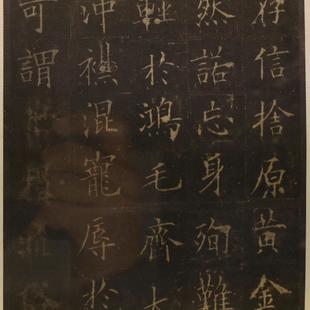 存信捨原黄金
然諾忘身殉難
輕於鴻毛齊大
冲襟混寵辱於
可謂